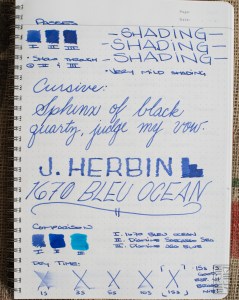 PASSES
I II III
-SHADING-
-SHADING-
-SHADING-
• SHOW THROUGH
@ II & III
• VERY MILD SHADING
Cursive:
Sphinx of black
quartz, judge my vow.
J. HERBIN
1670 BLEU OCEAN
COMPARISON
I II III
I. 1670 BLEU OCEAN
II. DIAMINE SARGASSO SEA
III. DIAMINE
DRY TIME:
1s 5s 10s 15s